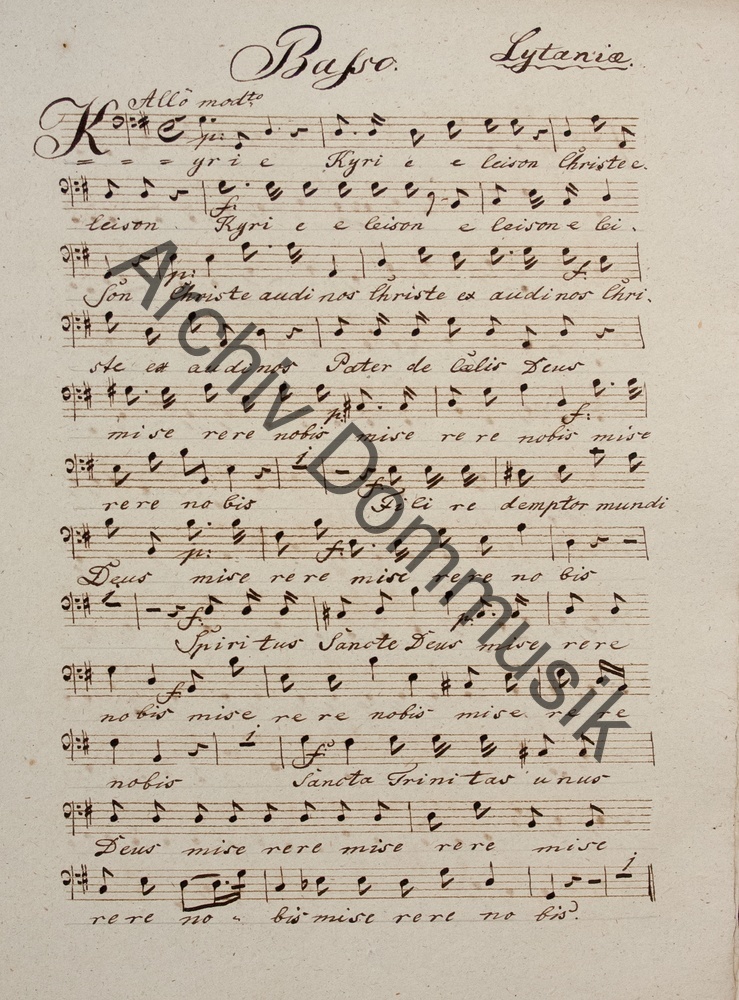 Basso. Lytaniæ.
Allõ modto
K p:
= = = yrie Kyri e e leison Christe e.
f:
leison Kyri e e leison e leison e lei.
p: f:
son Christe audi nos Christe ex audi nos Chri.
ste ex audi nos Pater de Cælis Deus
p: f:
mise rere nobis mise re re nobis mise
1 f:
rere nobis Fili re demptor mundi
p: f:
Deus mise rere mise rere no bis
f: p:
Spiritus Sancte Deus mise rere
f:
nobis mise re re nobis mise re re
1 f:
nobis Sancta Trinitas unus
Deus mise rere mise re re mise
1
rere no - bis mise rere no bis.
Archiv Dommusik